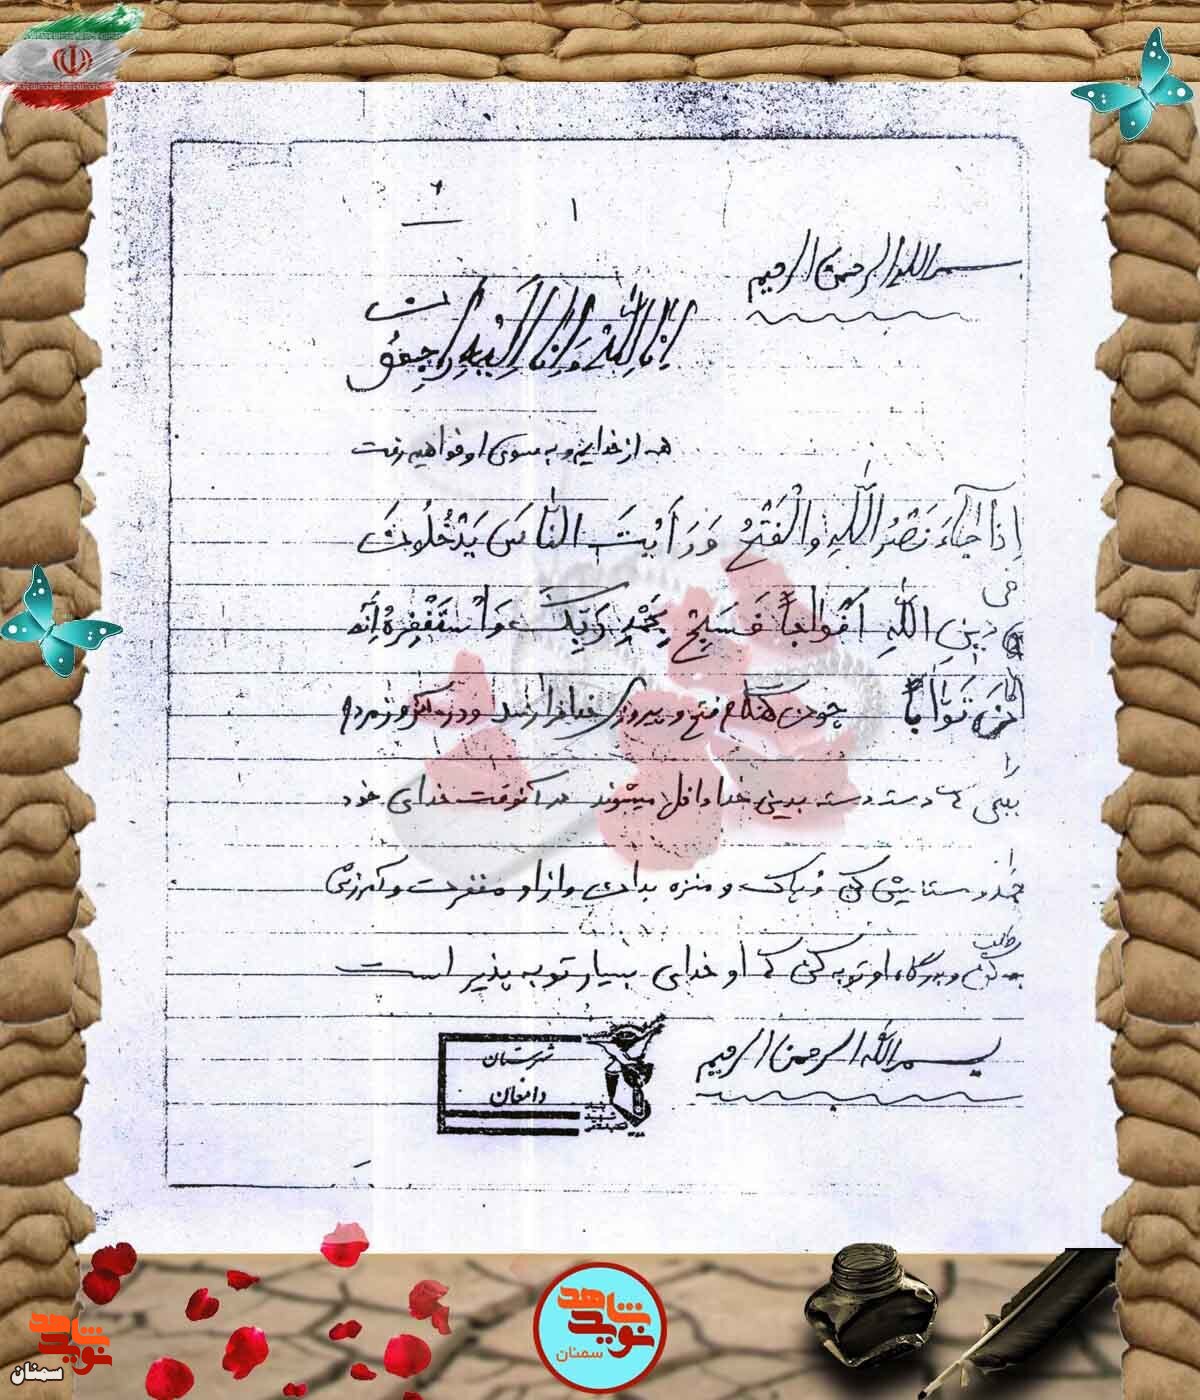 ۱
بسم الله الرحمن الرحیم
اِنا لِلّه وَ اِنا اِلَیْهِ راجِعُون
همه از خدایم و به سوی او خواهیم رفت
اِذا جٰاءَ نَصْرُ اللّٰهِ والْفَتْحُ وَرَاَیْتَ النّٰاسَ یَدْخُلُونَ
فی
دینِ اللّٰهِ اَفْواجاً فَسَبِّحْ بِحَمْدِ رَبِّکَ وَاسْتَغْفِرْهُ اِنَّهُ
کٰانَ تَوّٰاباً چون هنگام فتح و پیروزی خدا فرا رسد و در آنروز مردم
را
ببینی که دسته دسته بدین خدا داخل میشوند در آنوقت خدای خود
را
حمد و ستایش کن و پاک و منزه بدان و از او مغفرت و آمرزش
طلب
کن و بدرگاه او توبه کن که او خدای بسیار توبه پذیر است
بسم الله الرحمن الرحیم
شهرستان
دامغان
بنیاد
شهید
نوید شاهد
سمنان
نوید شاهد
سمنان